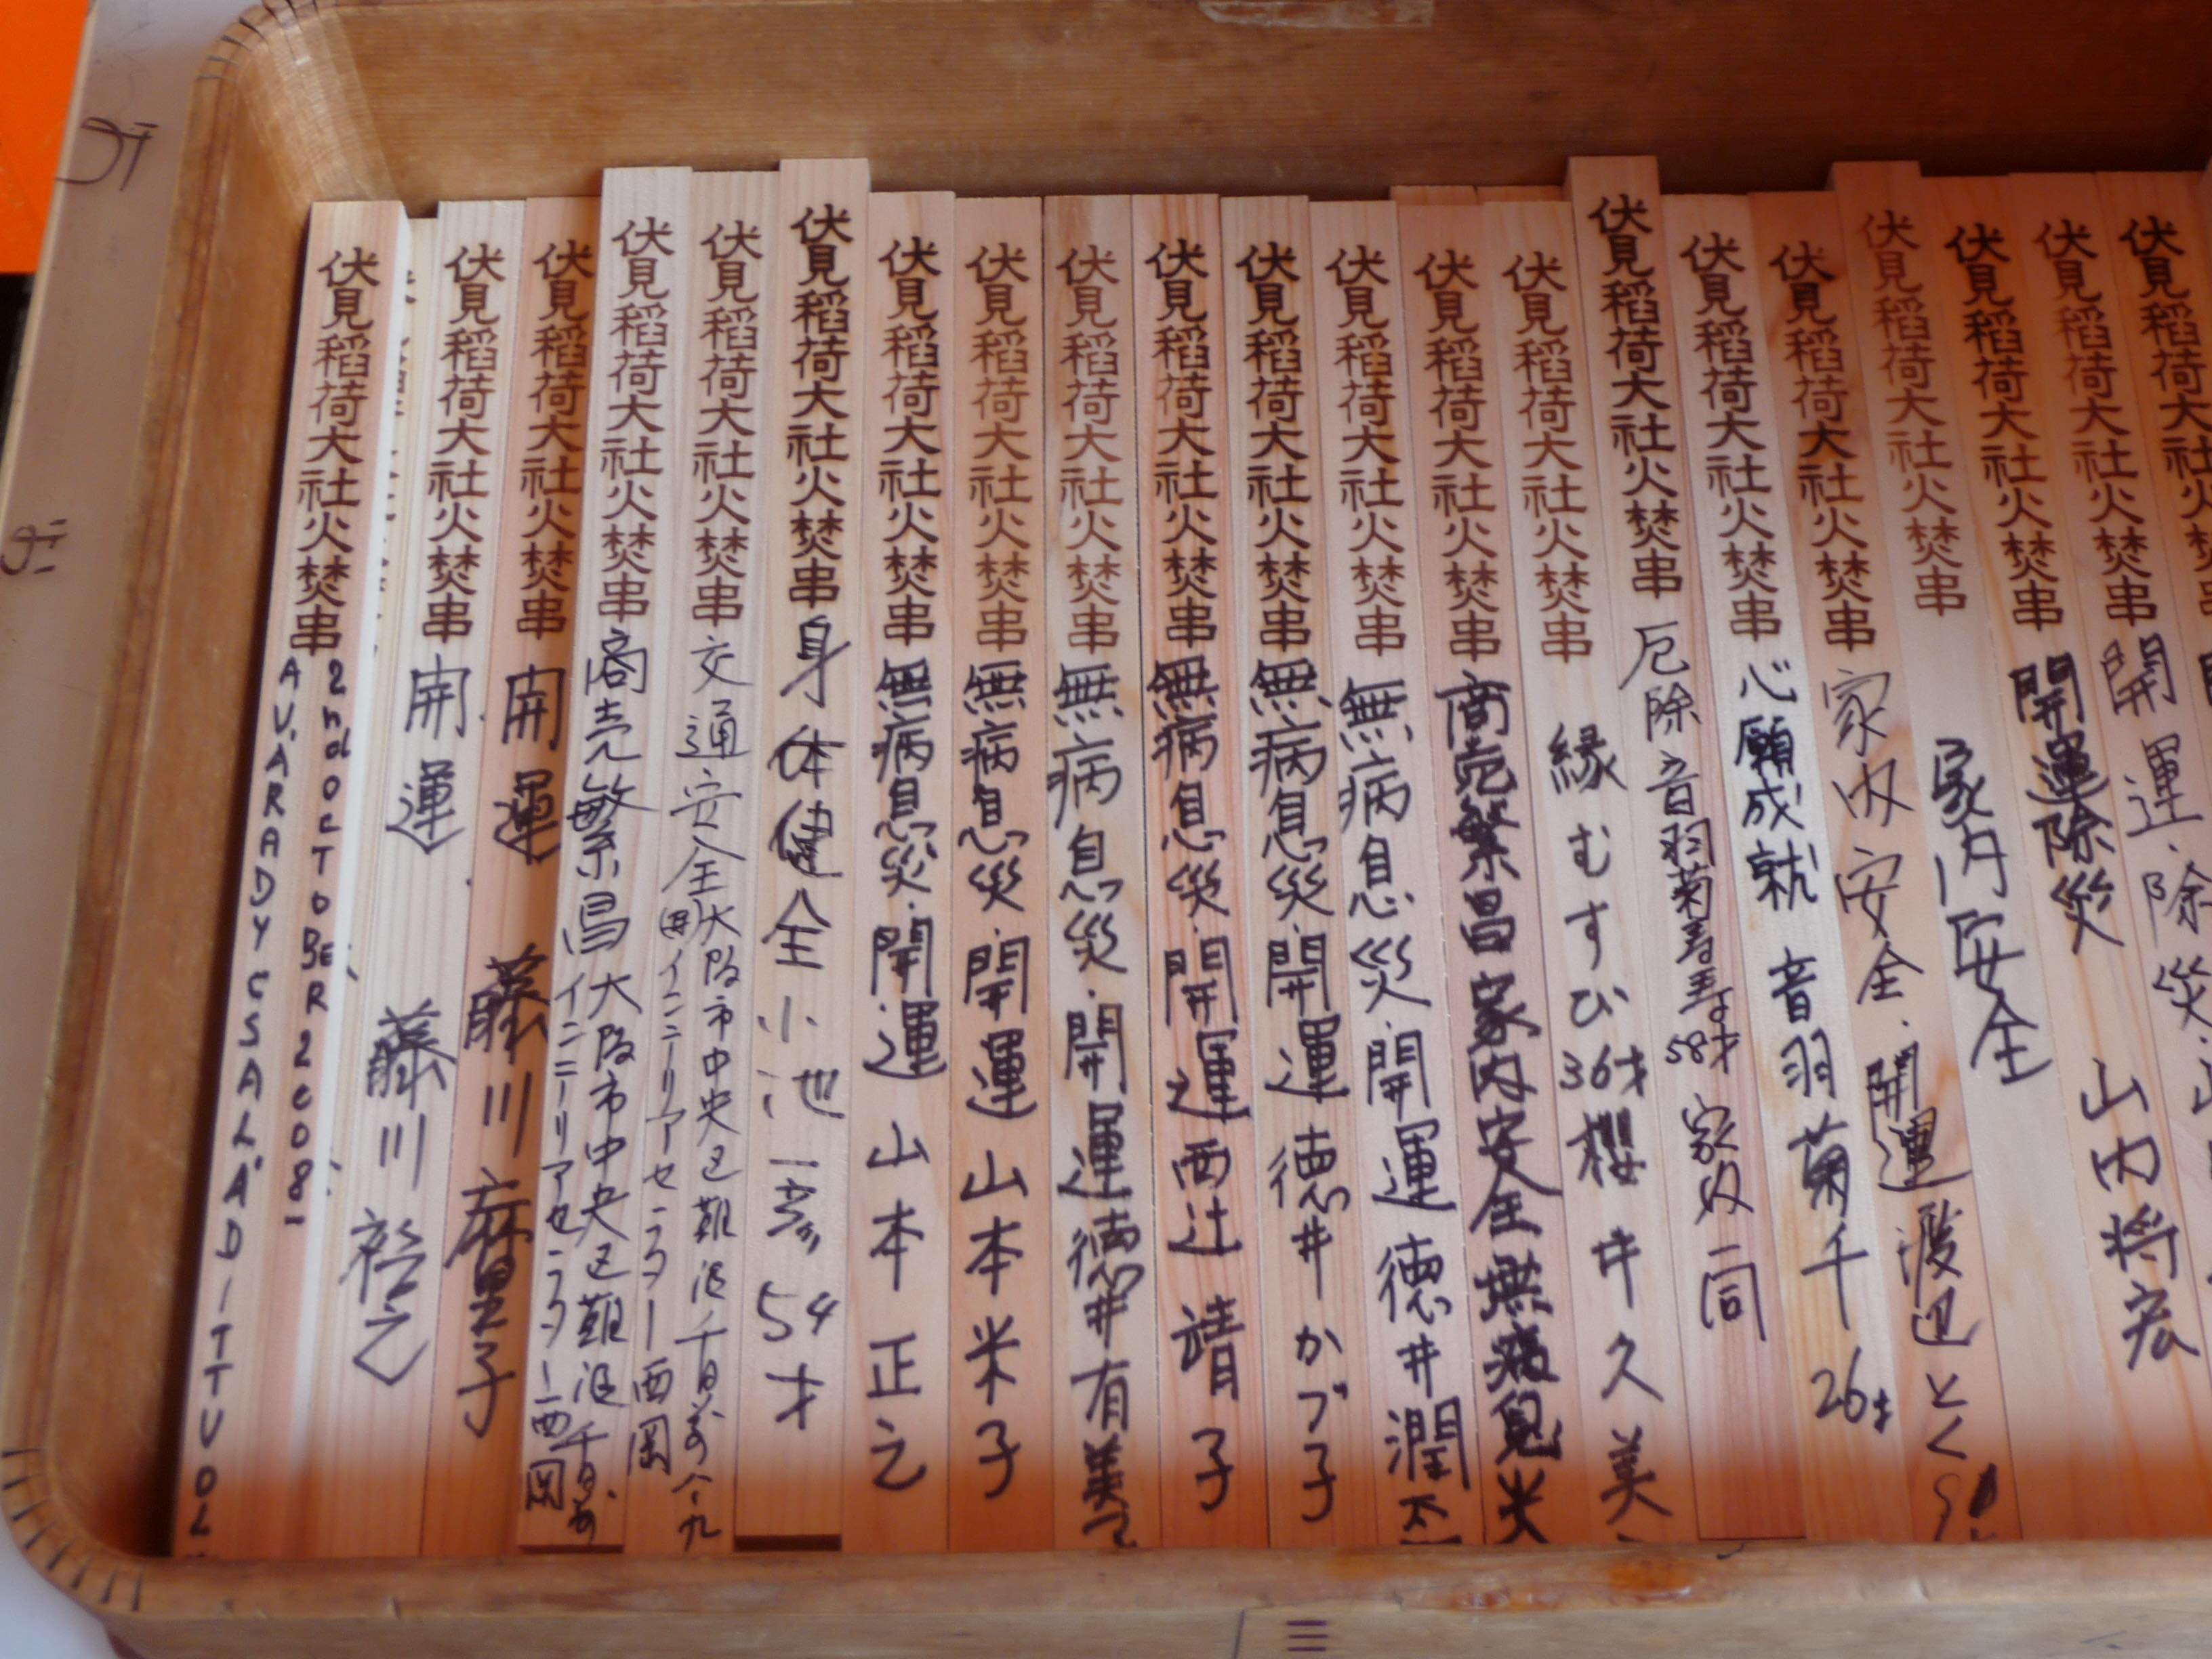 伏見稲荷大社火焚串
2nd OCTOBER 2008
A VÁRADY CSALÁD ITT VOL
伏見稲荷大社火焚串 開運 藤川 裕之
伏見稲荷大社火焚串 開運 藤川 麻里子
伏見稲荷大社火焚串 商売繁昌 大阪市中央区難波千日前
インテリアセンター西岡
伏見稲荷大社火焚串 交通安全 大阪市中央区難波千日前
インテリアセンター西岡
伏見稲荷大社火焚串 身体健全 小池 一彦 54才
伏見稲荷大社火焚串 無病息災・開運 山本正之
伏見稲荷大社火焚串 無病息災・開運 山本米子
伏見稲荷大社火焚串 無病息災・開運 徳井有美
伏見稲荷大社火焚串 無病息災・開運 西辻 靖子
伏見稲荷大社火焚串 無病息災・開運 徳井かづ子
伏見稲荷大社火焚串 無病息災・開運 徳井潤
伏見稲荷大社火焚串 商売繁昌 家内安全 無病息災
伏見稲荷大社火焚串 縁むすび 36才 櫻井久美
伏見稲荷大社火焚串 厄除 音羽菊 58才 家内一同
伏見稲荷大社火焚串 心願成就 音羽菊千 26才
伏見稲荷大社火焚串 家内安全・開運 渡辺とく
伏見稲荷大社火焚串 家内安全
伏見稲荷大社火焚串 開運除災 山内将宏
伏見稲荷大社火焚串 開運・除災・
伏見稲荷大社火焚串